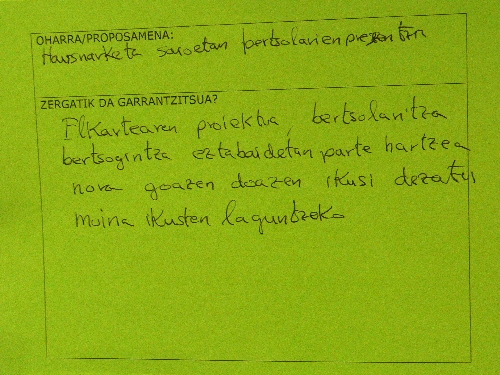 OHARRA/PROPOSAMENA:
Hausnarketa saioetan bertsolarien presentzia
ZERGATIK DA GARRANTZITSUA?
Elkartearen proiektua, bertsolaritza
bertsogintza eztabaidetan parte hartzea
nora goazen doazen ikusi dezaten
muina ikusten laguntzeko